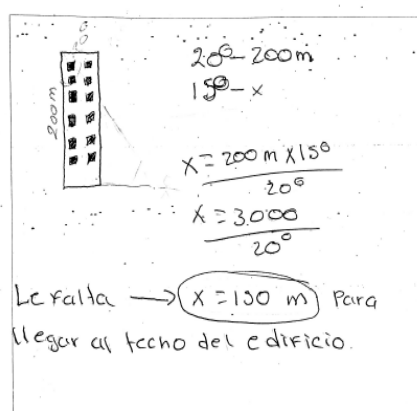 200m
20° - 200m
15° - x
x = 200 m x 15°
20°
x = 3.000
20°
Le falta → x = 150 m para
llegar al techo del edificio.